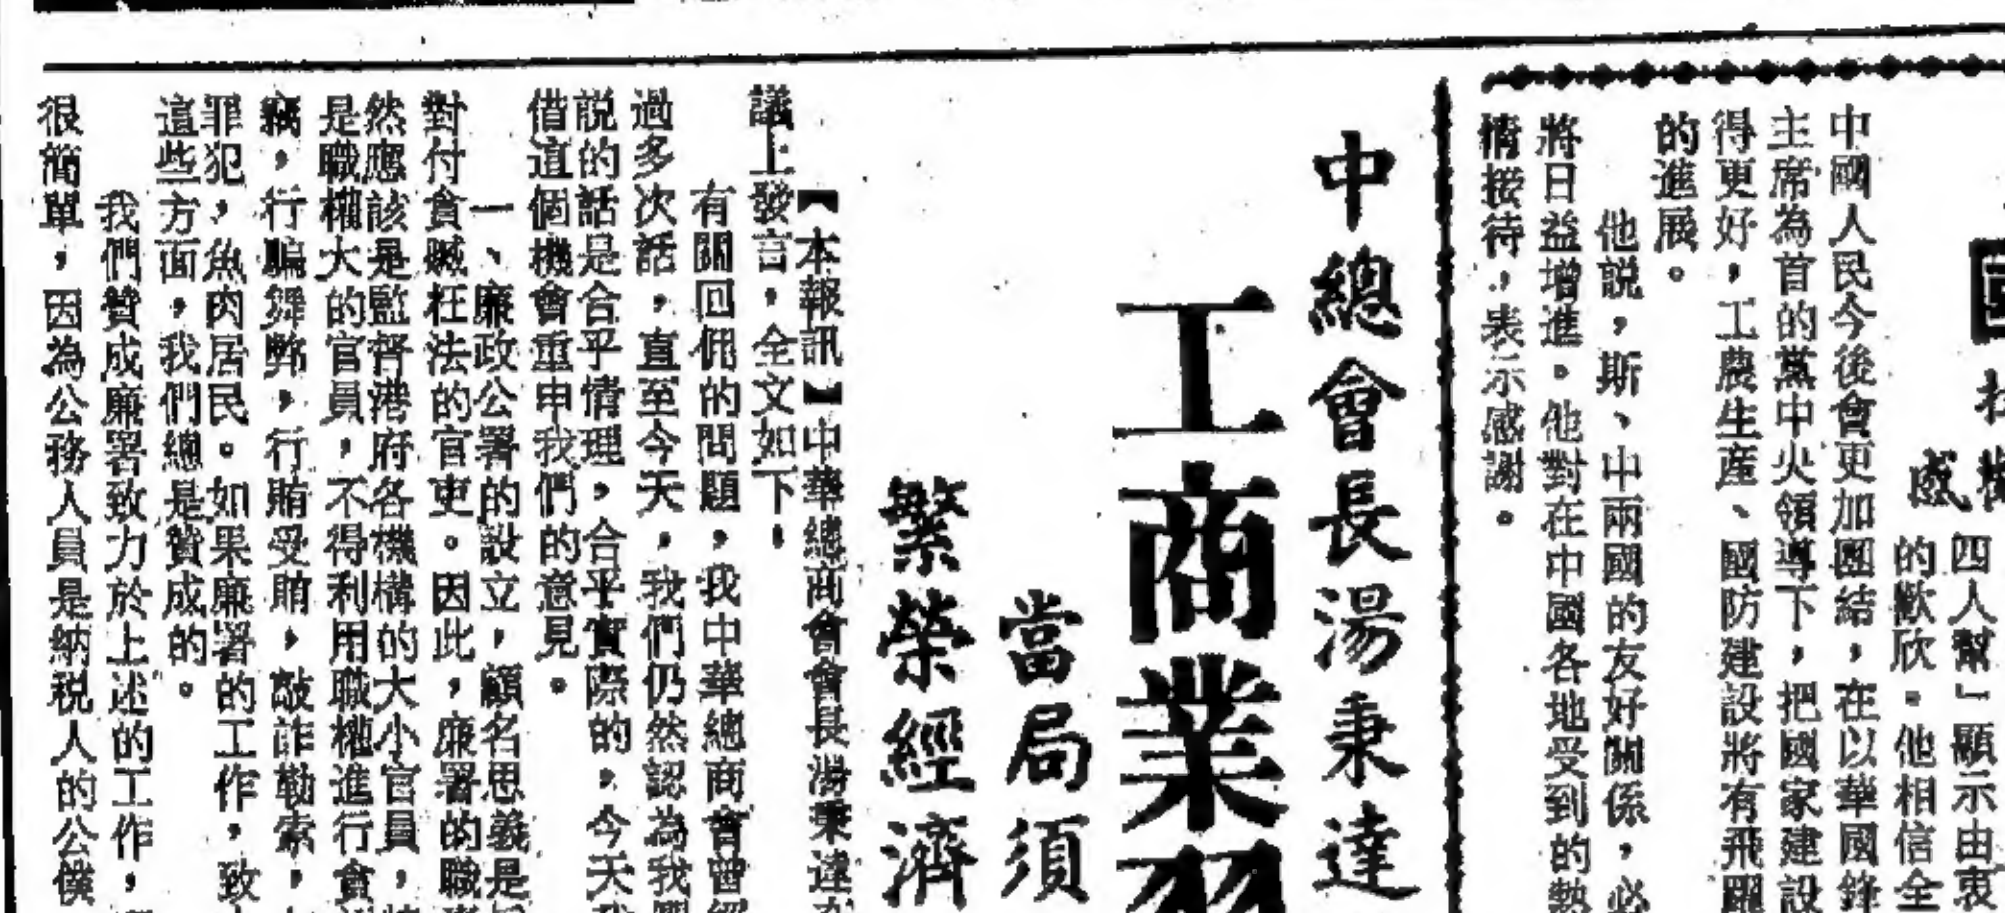 四人幫」顯示由衷
的歡欣。他相信全
中國人民今後會更加團結，在以華國鋒
主席為首的黨中央領導下，把國家建設
得更好，工農生產、國防建設將有飛躍
的進展。
他説，斯、中兩國的友好關係，必
將日益增進。他對在中國各地受到的熱
情接待，表示感謝。
中總會長湯秉達
工商業
當局須
繁榮經濟
【本報訊】中華總商會會長湯秉達在
議上發言，全文如下：
有關回佣的問題，我中華總商會曾經
過多次話，直至今天，我們仍然認為我們
説的話是合乎情理，合乎實際的，今天我
借這個機會重申我們的意見。
一、廉政公署的設立，顧名思義是
對付貪贓枉法的官吏。因此，廉署的職
然應該是監督港府各機構的大小官員，
是職權大的官員，不得利用職權進行貪
竊，行騙舞弊，行賄受賄，敲詐勒索，
罪犯，魚肉居民。如果廉署的工作，致
這些方面，我們總是贊成的。
我們贊成廉署致力於上述的工作，
很簡單，因為公務人員是納税人的公僕